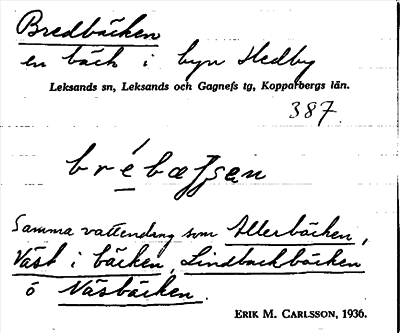 Bredbäcken
en bäck i byn Hedby
Leksands sn, Leksands och Gagnefs tg, Kopparbergs län.
387.
Samma vattendrag som Allerbäcken,
Väst i bäcken, Lindbackbäcken
o Näsbäcken.
ERIK M. CARLSSON, 1936.